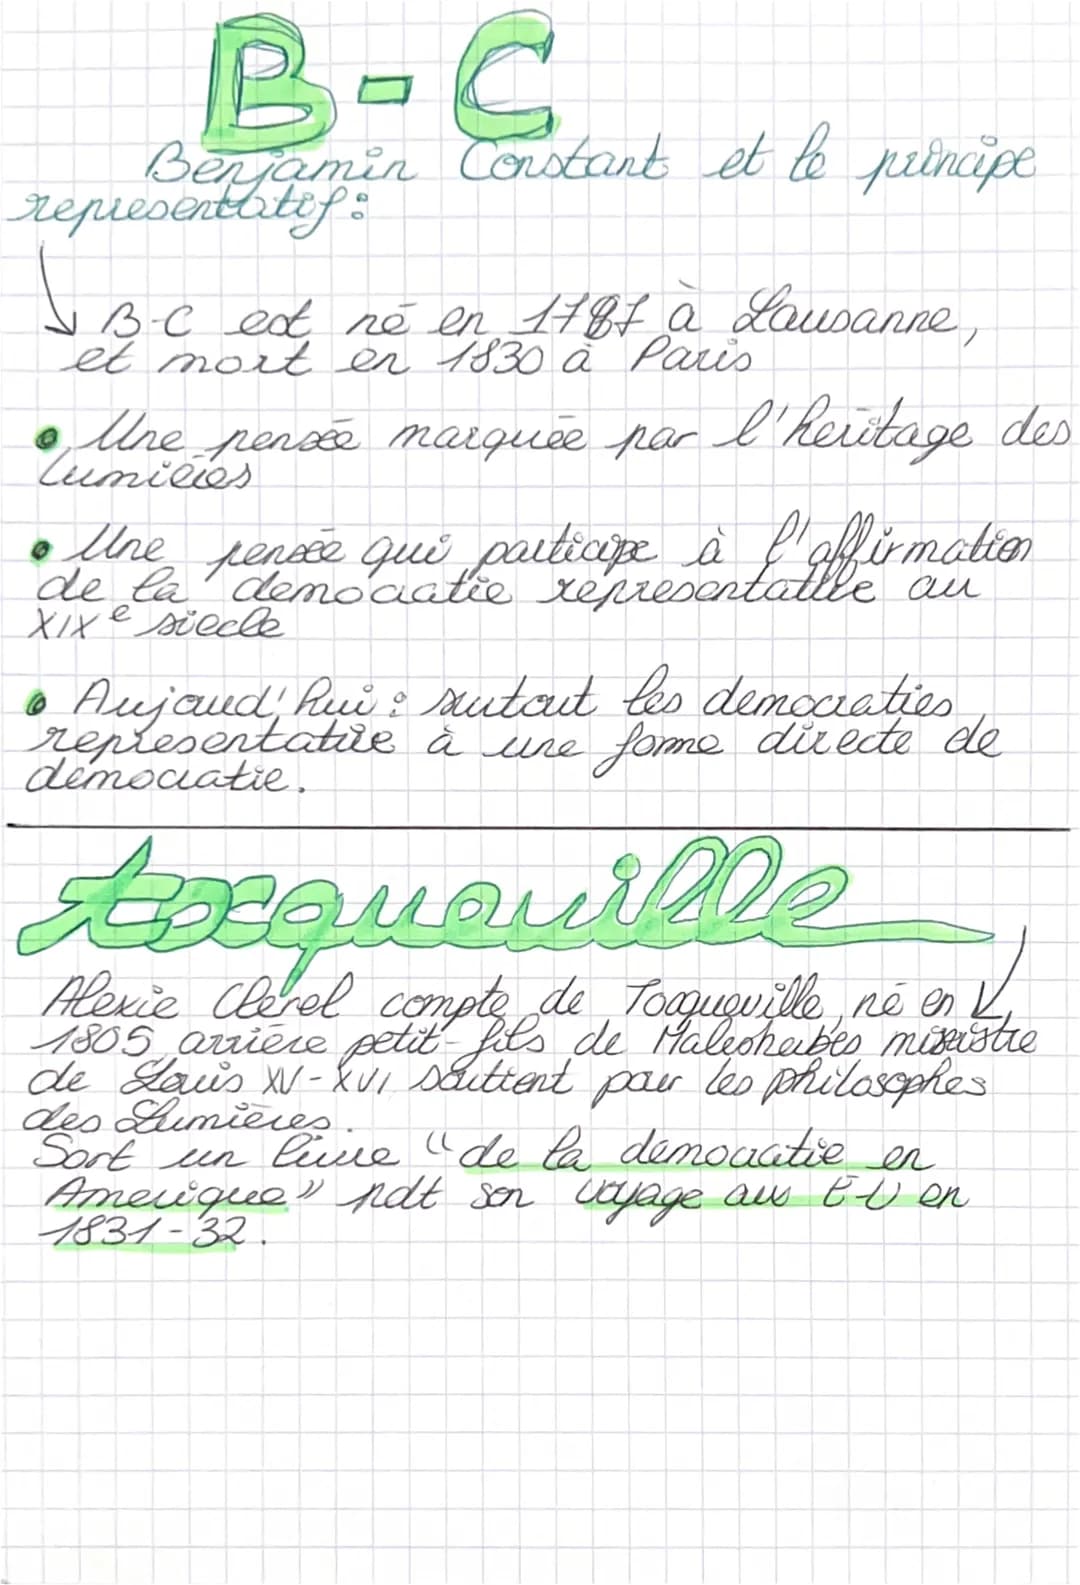 B-C
Benjamin Constant et le principe
representatif :
B-C est né en 1787 à Lausanne,
et mort en 1830 à Paris
Une pensée marquée par l'heritage des
Lumières
Une pensée qui participe à l'affirmation
de la democratie representative au
XIXe siecle
Aujourd'hui : surtout les democraties
representative à une forme directe de
démocratie.
tocqueville
Alexie Clérel compte de Tocqueville, né en
1805 arrière petit-fils de Malesherbes ministre
de Louis XV-XVI, souttent par les philosophes
des Lumières.
Sort un livre "de la democratie en
Amerique" pdt son voyage aus E-U en
1831-32.